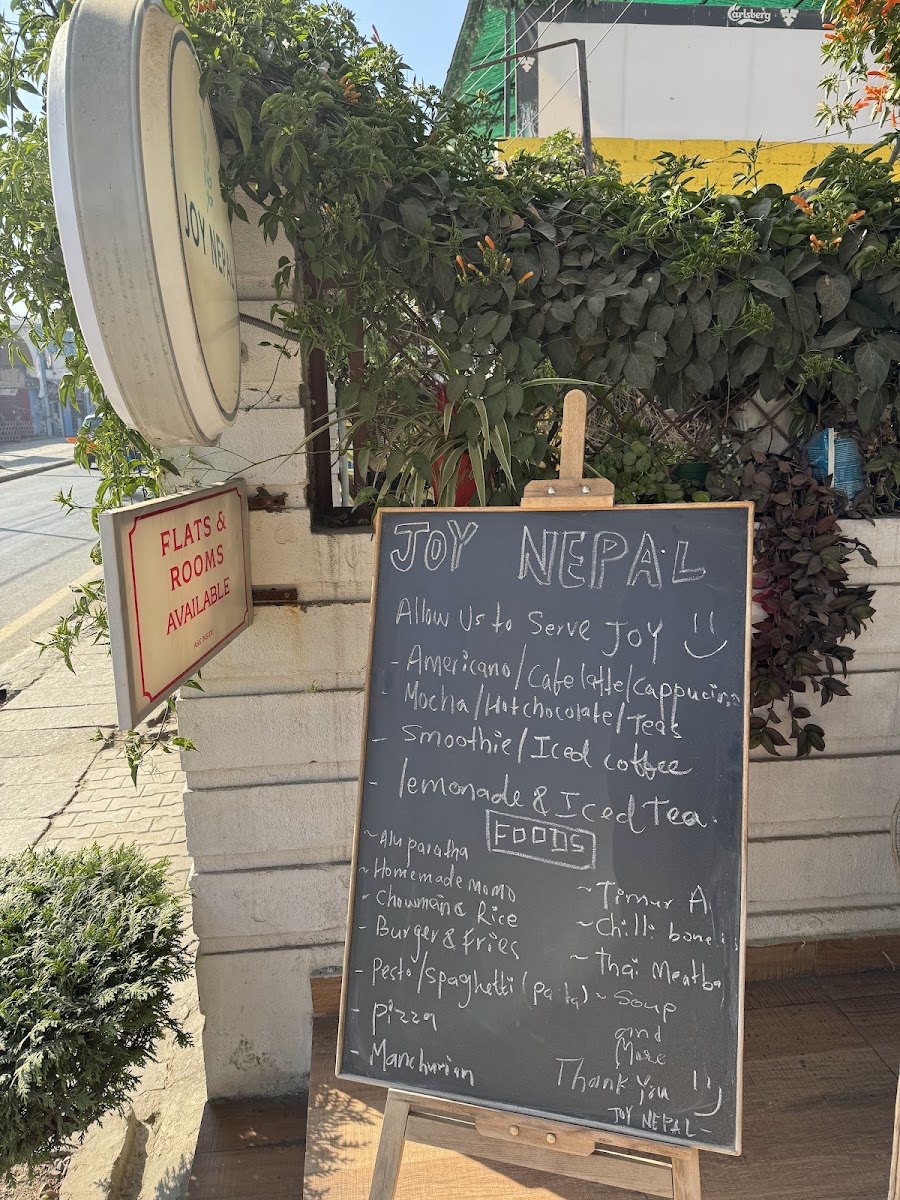 Carlsberg
JOY NEPAL
FLATS &
ROOMS
AVAILABLE
ASK INSIDE
JOY NEPAL
Allow Us to Serve JOY
- Americano/Cafe latte/Cappucino
- Mocha/Hotchocolate/Teas
- Smoothie/Iced coffee
- lemonade & Iced Tea.
FOODS
~ Alu paratha
~ Homemade momo
- Chowmein & Rice
- Burger & Fries
- Pesto/Spaghetti (Pasta)
- Pizza
- Manchurian
~ Timur A
~ Chilli
~ Thai Meatba
~ Soup
and
More
Thank You
JOY NEPAL -